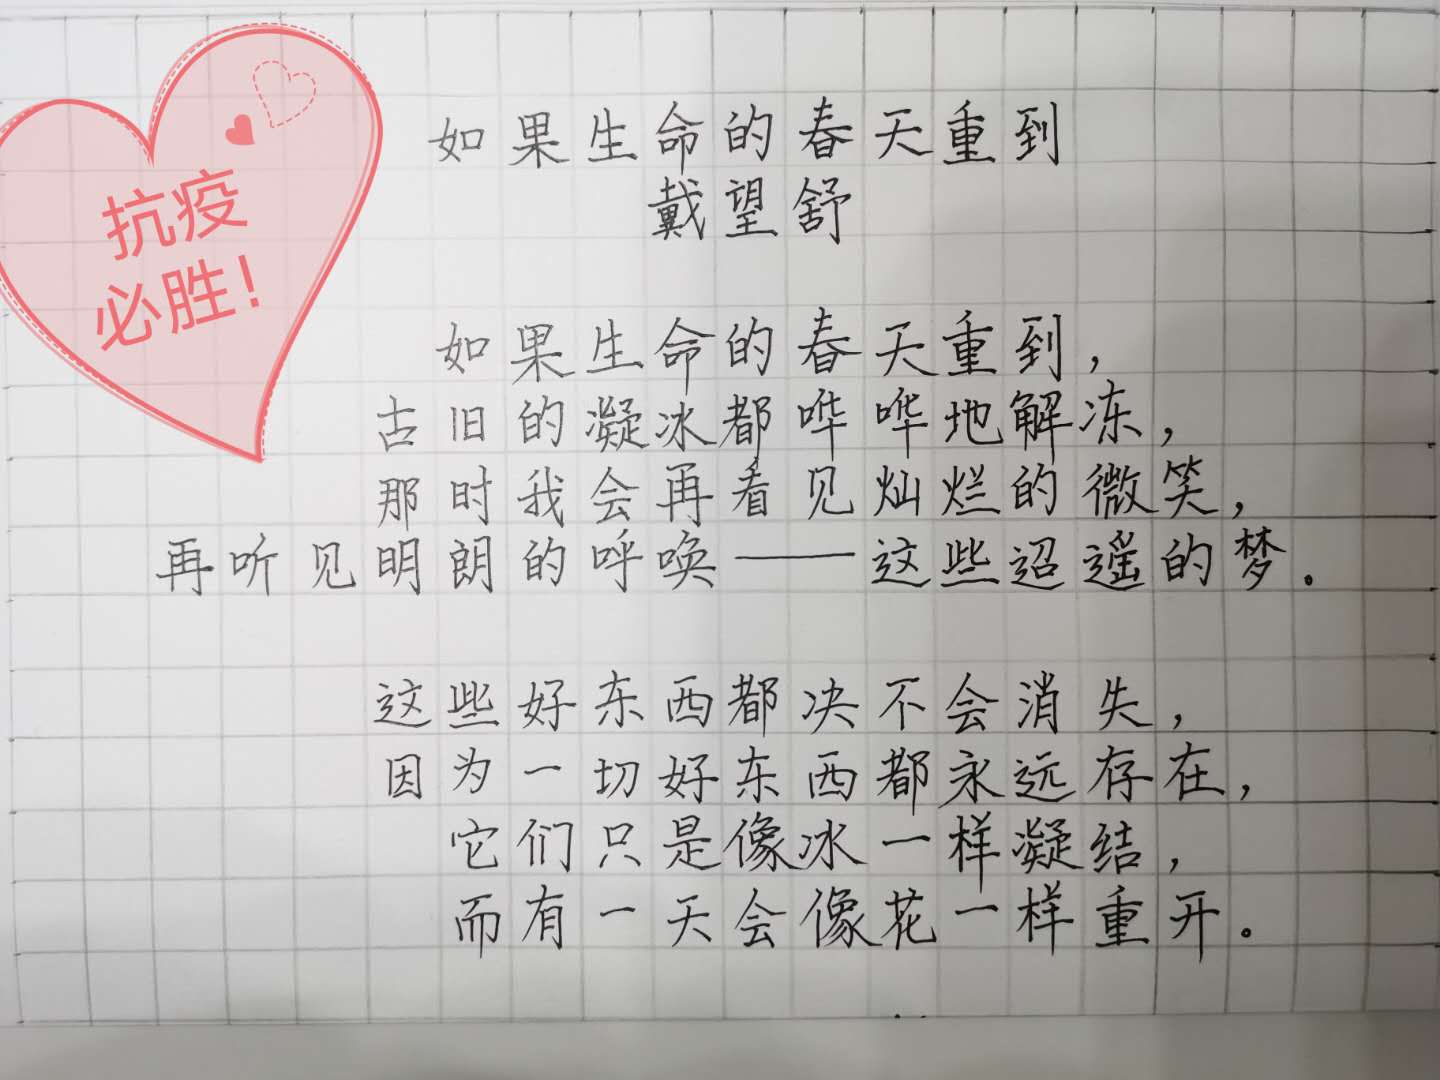 抗疫
必胜！
如果生命的春天重到
戴望舒
如果生命的春天重到，
古旧的凝冰都哗哗地解冻，
那时我会再看见灿烂的微笑，
再听见明朗的呼唤——这些迢遥的梦。
这些好东西都决不会消失，
因为一切好东西都永远存在，
它们只是像冰一样凝结，
而有一天会像花一样重开。